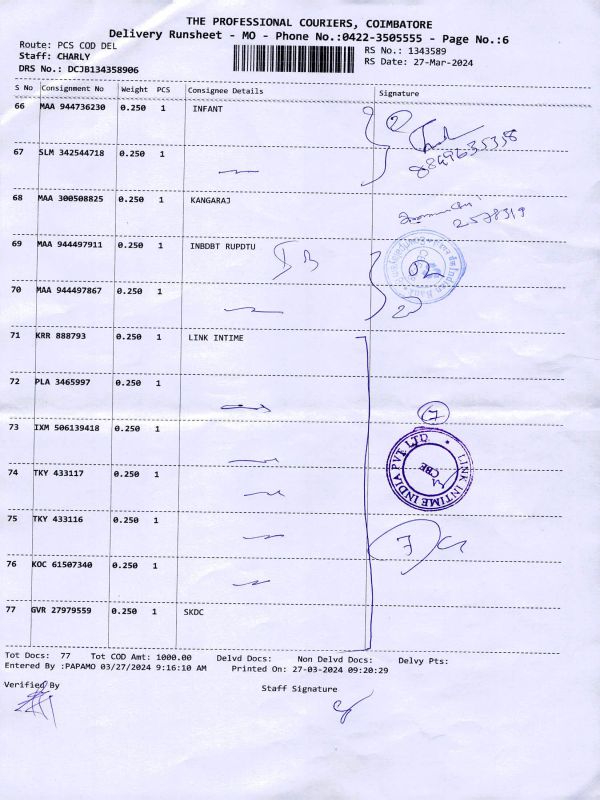 THE PROFESSIONAL COURIERS, COIMBATORE
Delivery Runsheet - MO - Phone No.:0422-3505555 - Page No.:6
Route: PCS COD DEL
Staff: CHARLY
DRS No.: DCJB134358906
RS No.: 1343589
RS Date: 27-Mar-2024
S No Consignment No Weight PCS Consignee Details Signature
66 MAA 944736230 0.250 1 INFANT
2
8849635358
67 SLM 342544718 0.250 1
68 MAA 300508825 0.250 1 KANGARAJ
2578319
69 MAA 944497911 0.250 1 INBDBT RUPDTU
IB
Indian Bank
70 MAA 944497867 0.250 1
71 KRR 888793 0.250 1 LINK INTIME
72 PLA 3465997 0.250 1
7
73 IXM 506139418 0.250 1
LINK INTIME INDIA PVT LTD.
CBE
74 TKY 433117 0.250 1
75 TKY 433116 0.250 1
7
76 KOC 61507340 0.250 1
77 GVR 27979559 0.250 1 SKDC
Tot Docs: 77 Tot COD Amt: 1000.00 Delvd Docs: Non Delvd Docs: Delvy Pts:
Entered By :PAPAMO 03/27/2024 9:16:10 AM Printed On: 27-03-2024 09:20:29
Verified By
Staff Signature